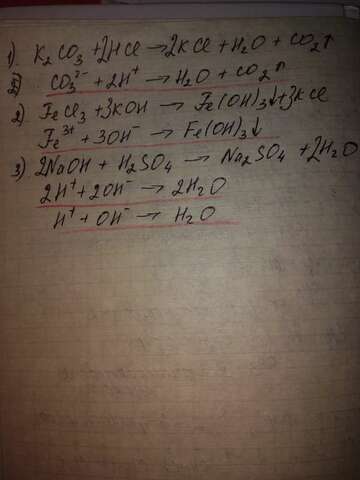 1). K₂CO₃ + 2HCl → 2KCl + H₂O + CO₂↑
CO₃²⁻ + 2H⁺ → H₂O + CO₂↑
2) FeCl₃ + 3KOH → Fe(OH)₃↓ + 3KCl
Fe³⁺ + 3OH⁻ → Fe(OH)₃↓
3) 2NaOH + H₂SO₄ → Na₂SO₄ + 2H₂O
2H⁺ + 2OH⁻ → 2H₂O
H⁺ + OH⁻ → H₂O